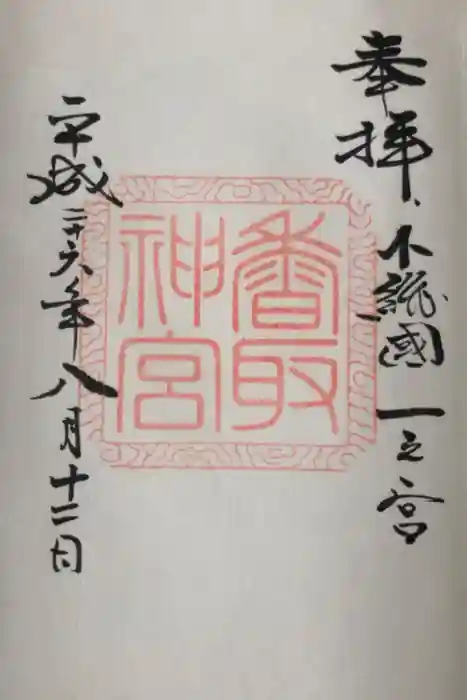 奉拝、下総國一之宮
香取
神宮
平成二十六年八月十二日